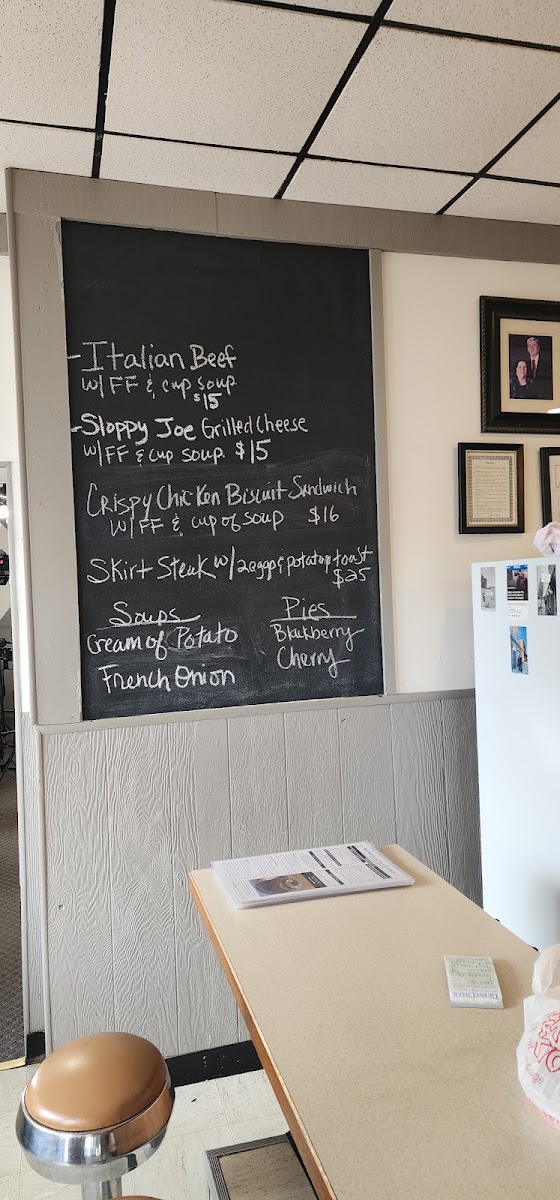 -Italian Beef
w/FF & cup soup
$15
-Sloppy Joe Grilled Cheese
w/FF & cup soup $15
Crispy Chicken Biscuit Sandwich
w/FF & cup of soup $16
Skirt Steak w/2eggs potatoe toast
$25
Soups
Cream of Potato
French Onion
Pies
Blackberry
Cherry
GUEST CHECK